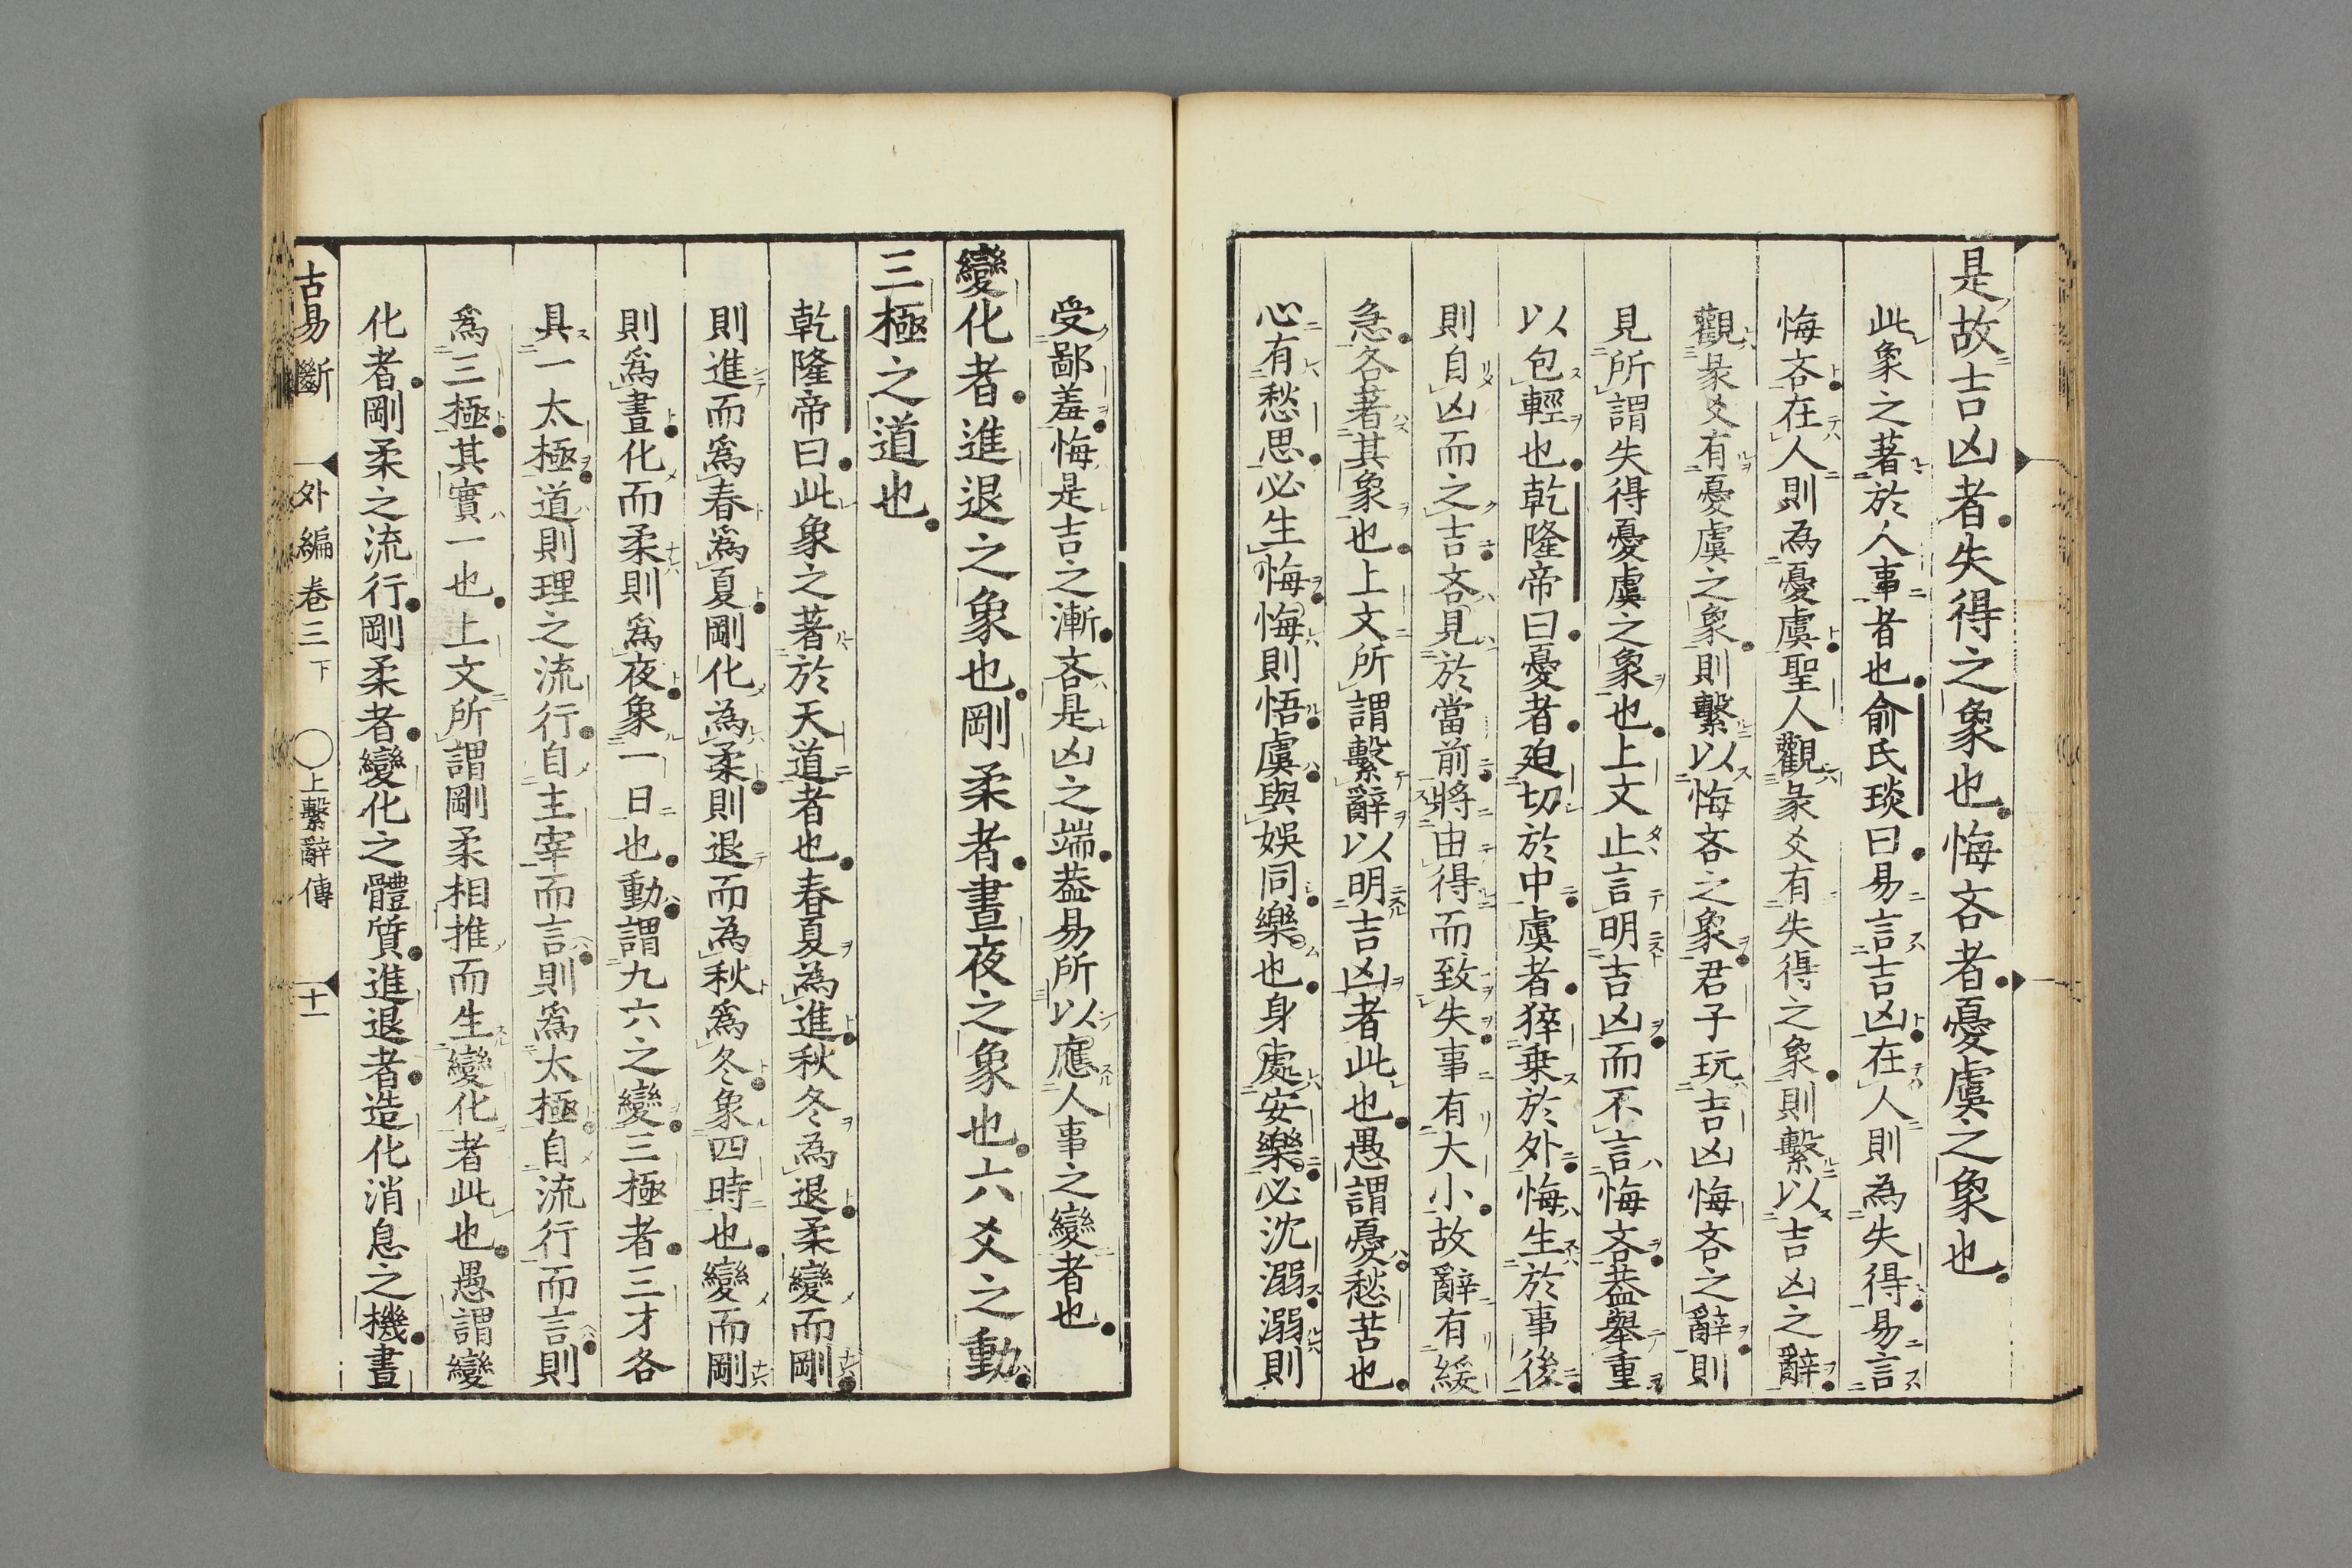 是故吉凶者失得之象也悔吝者憂虞之象也
此象之著於人事者也兪氏琰曰易言吉凶在人則為失得易言
悔吝在人則為憂虞聖人觀彖爻有失得之象則繫以吉凶之辭
觀彖爻有憂虞之象則繫以悔吝之象君子玩吉凶悔吝之辭則
見所謂失得憂虞之象也上文止言明吉凶而不言悔吝葢舉重
以包輕也乾隆帝曰憂者廹切於中虞者猝乗於外悔生於事後
則自凶而之吉吝見於當前將由得而致失事有大小故辭有緩
急各著其象也上文所謂繫辭以明吉凶者此也愚謂憂愁苦也
心有愁思必生悔悔則悟虞與娯同樂也身處安樂必沈溺溺則
受鄙羞悔是吉之漸吝是凶之端葢易所以應人事之變者也
變化者進退之象也剛柔者晝夜之象也六爻之動
三極之道也
乾隆帝曰此象之著於天道者也春夏為進秋冬為退柔變而剛
則進而爲春爲夏剛化為柔則退而為秋爲冬象四時也變而剛
則爲晝化而柔則爲夜象一日也動謂九六之變三極者三才各
具一太極道則理之流行自主宰而言則爲太極自流行而言則
爲三極其實一也上文所謂剛柔相推而生變化者此也愚謂變
化者剛柔之流行剛柔者變化之體質進退者造化消息之機晝
古易斷 外編卷三下 〇上繫辭傳 十一